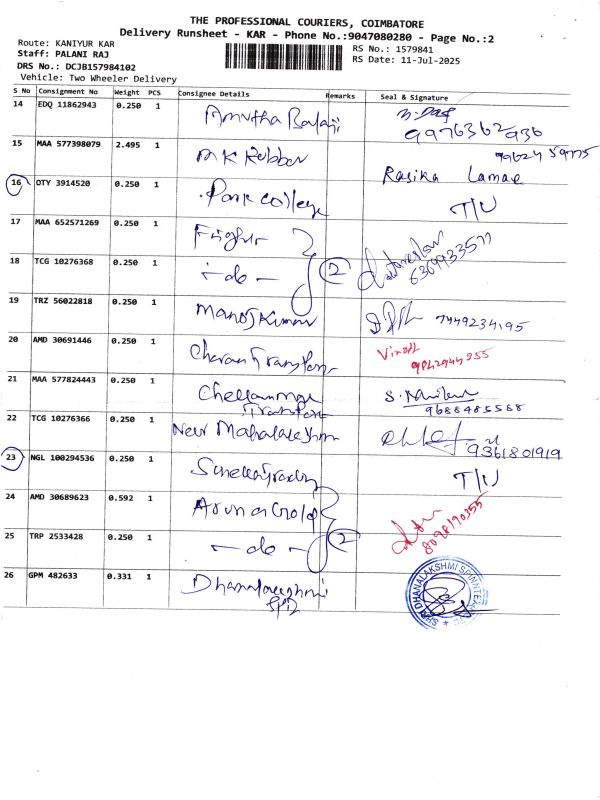 THE PROFESSIONAL COURIERS, COIMBATORE
Delivery Runsheet - KAR - Phone No.:9047080280 - Page No.:2
Route: KANIYUR KAR
RS No.: 1579841
Staff: PALANI RAJ
RS Date: 11-Jul-2025
DRS No.: DCJB157984102
Vehicle: Two Wheeler Delivery
S No Consignment No Weight PCS Consignee Details Remarks Seal & Signature
14 EDQ 11862943 0.250 1 Amutha Balaji
9976362936
15 MAA 577398079 2.495 1 MK Rubber Rasika
16 OTY 3914520 0.250 1 Park College T/U
17 MAA 652571269 0.250 1
18 TCG 10276368 0.250 1 - do - 2
19 TRZ 56022818 0.250 1 Manoj Kumar 7449234195
20 AMD 30691446 0.250 1 Charan Transport
21 MAA 577824443 0.250 1 Transport
9688485588
22 TCG 10276366 0.250 1 New Mahalakshmi
9361801919
23 NGL 100294536 0.250 1 T/U
24 AMD 30689623 0.592 1
8098190355
25 TRP 2533428 0.250 1 - do - 2
26 GPM 482633 0.331 1 Dhanalakshmi
SHRI DHANALAKSHMI SPINNTEX